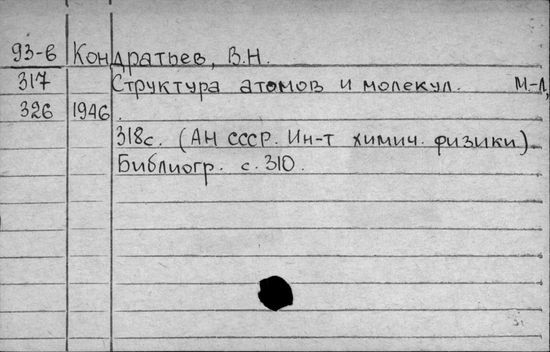 93-6 Кондратьев, В.Н.
317 Структура атомов и молекул. М-Л,
326 1946.
318с. (АН СССР. Ин-т химич. физики)
Библиогр. с. 310.